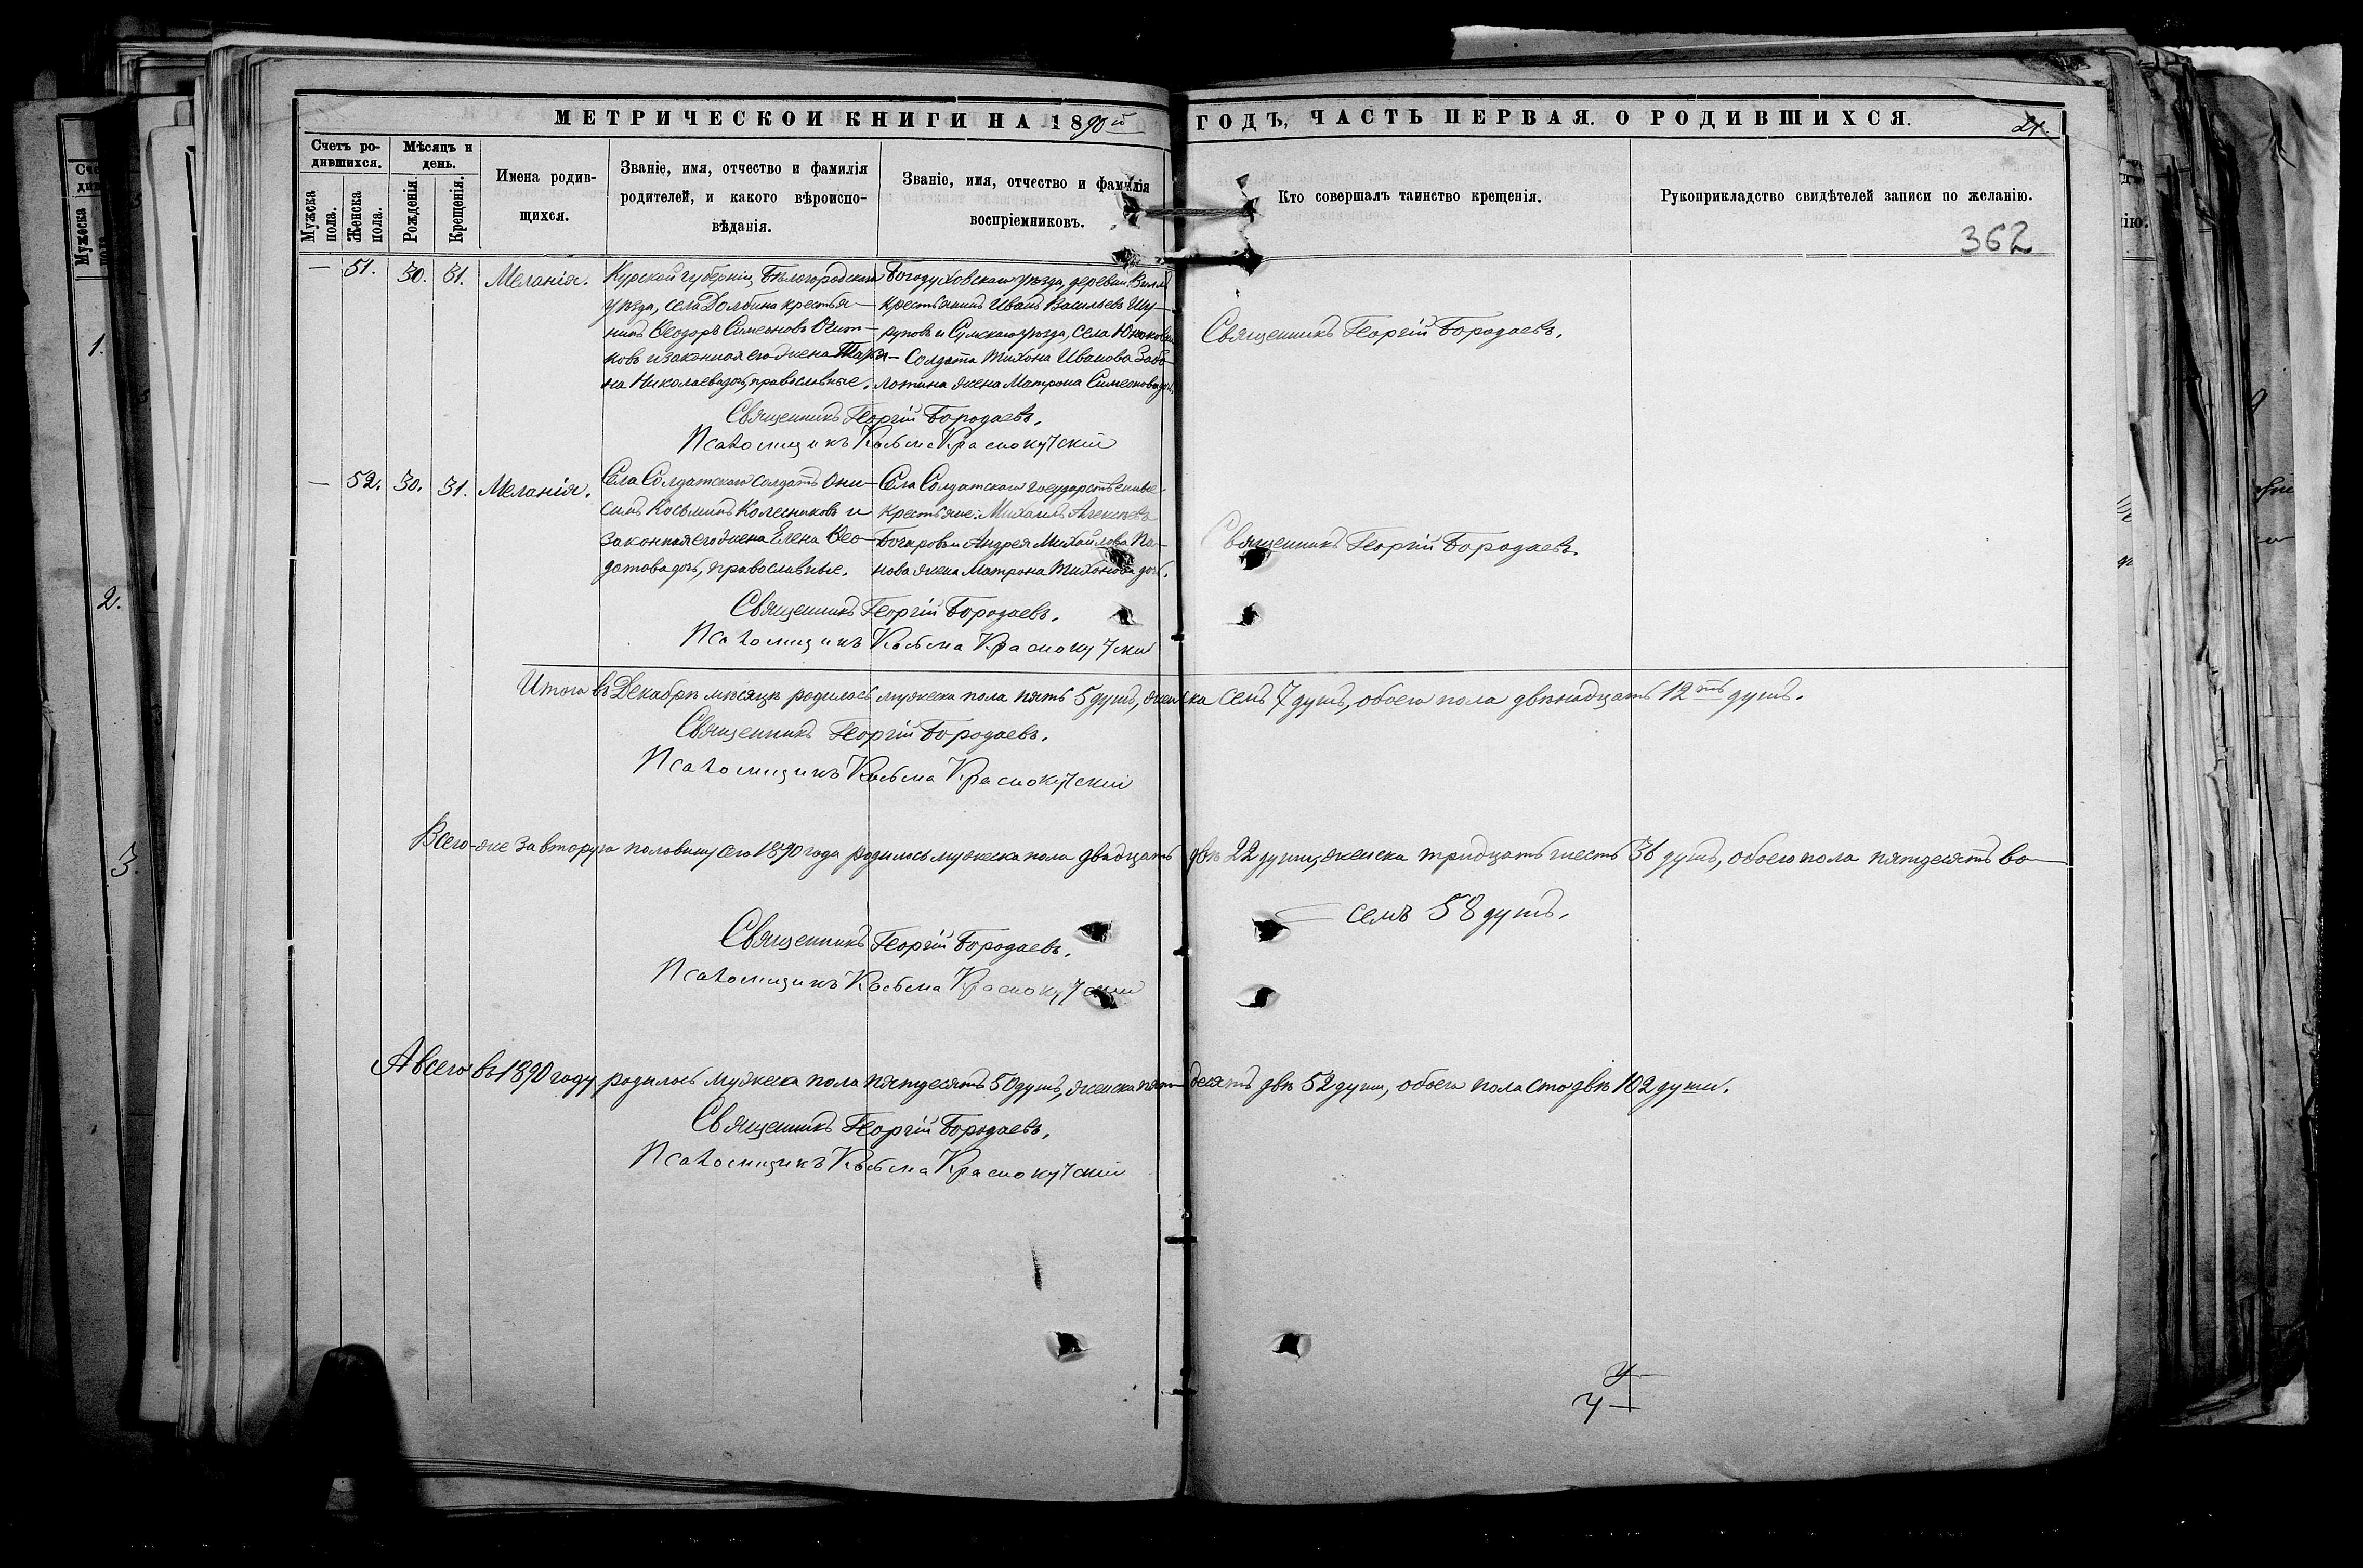 МЕТРИЧЕСКОЙ КНИГИ НА 1890й ГОДЪ, ЧАСТЬ ПЕРВАЯ. О РОДИВШИХСЯ.
Счетъ ро-
дившихся.
Мужеска
пола.
Женска
пола.
Мѣсяцъ и
день.
Рожденія.
Крещенія.
Имена родив-
шихся.
Званіе, имя, отчество и фамилія
родителей, и какого вѣроиспо-
вѣданія.
Званіе, имя, отчество и фамилія
воспріемниковъ.
Кто совершалъ таинство крещенія.
Рукоприкладство свидѣтелей записи по желанію.
362
— 51. 30. 31. Меланія.
Курской губерніи, Бѣлогородскаго
уѣзда, села Долбина крестья-
нинъ Ѳеодоръ Симеоновъ
и законная его жена
на Николаева дочь, православные.
Богодуховскаго уѣзда, деревни
крестьянинъ Иванъ Васильевъ Шу-
руповъ и Сумскаго уѣзда, села
Солдата Тихона Иванова Забо-
лотина жена Матрона Симеонова дочь.
Священникъ Георгій Бородаевъ.
Священникъ Георгій Бородаевъ.
Псаломщикъ Косьма Краснокутскій
— 52. 30. 31. Меланія.
Села Солдатскаго солдатъ Они-
симъ Косьминъ Колесниковъ и
законная его жена Елена Ѳео-
дотова дочь, православные.
Села Солдатскаго государственные
крестьяне: Михаилъ Алексѣевъ
Бочаровъ и Андрея Михайлова Па-
нова жена Матрона Тихонова дочь.
Священникъ Георгій Бородаевъ.
Священникъ Георгій Бородаевъ.
Псаломщикъ Косьма Краснокутскій
Итого въ Декабрѣ мѣсяцѣ родилось мужеска пола пять 5 душъ, женска семь 7 душъ, обоего пола двѣнадцать 12ть душъ.
Священникъ Георгій Бородаевъ.
Псаломщикъ Косьма Краснокутскій
Всего-же за вторую половину сего 1890 года родилось мужеска пола двадцать двѣ 22 души, женска тридцать шесть 36 душъ, обоего пола пятдесятъ во-
семь 58 душъ.
Священникъ Георгій Бородаевъ.
Псаломщикъ Косьма Краснокутскій
А всего въ 1890 году родилось мужеска пола пятдесятъ 50 душъ, женска пятьдесятъ двѣ 52 души, обоего пола сто двѣ 102 души.
Священникъ Георгій Бородаевъ.
Псаломщикъ Косьма Краснокутскій